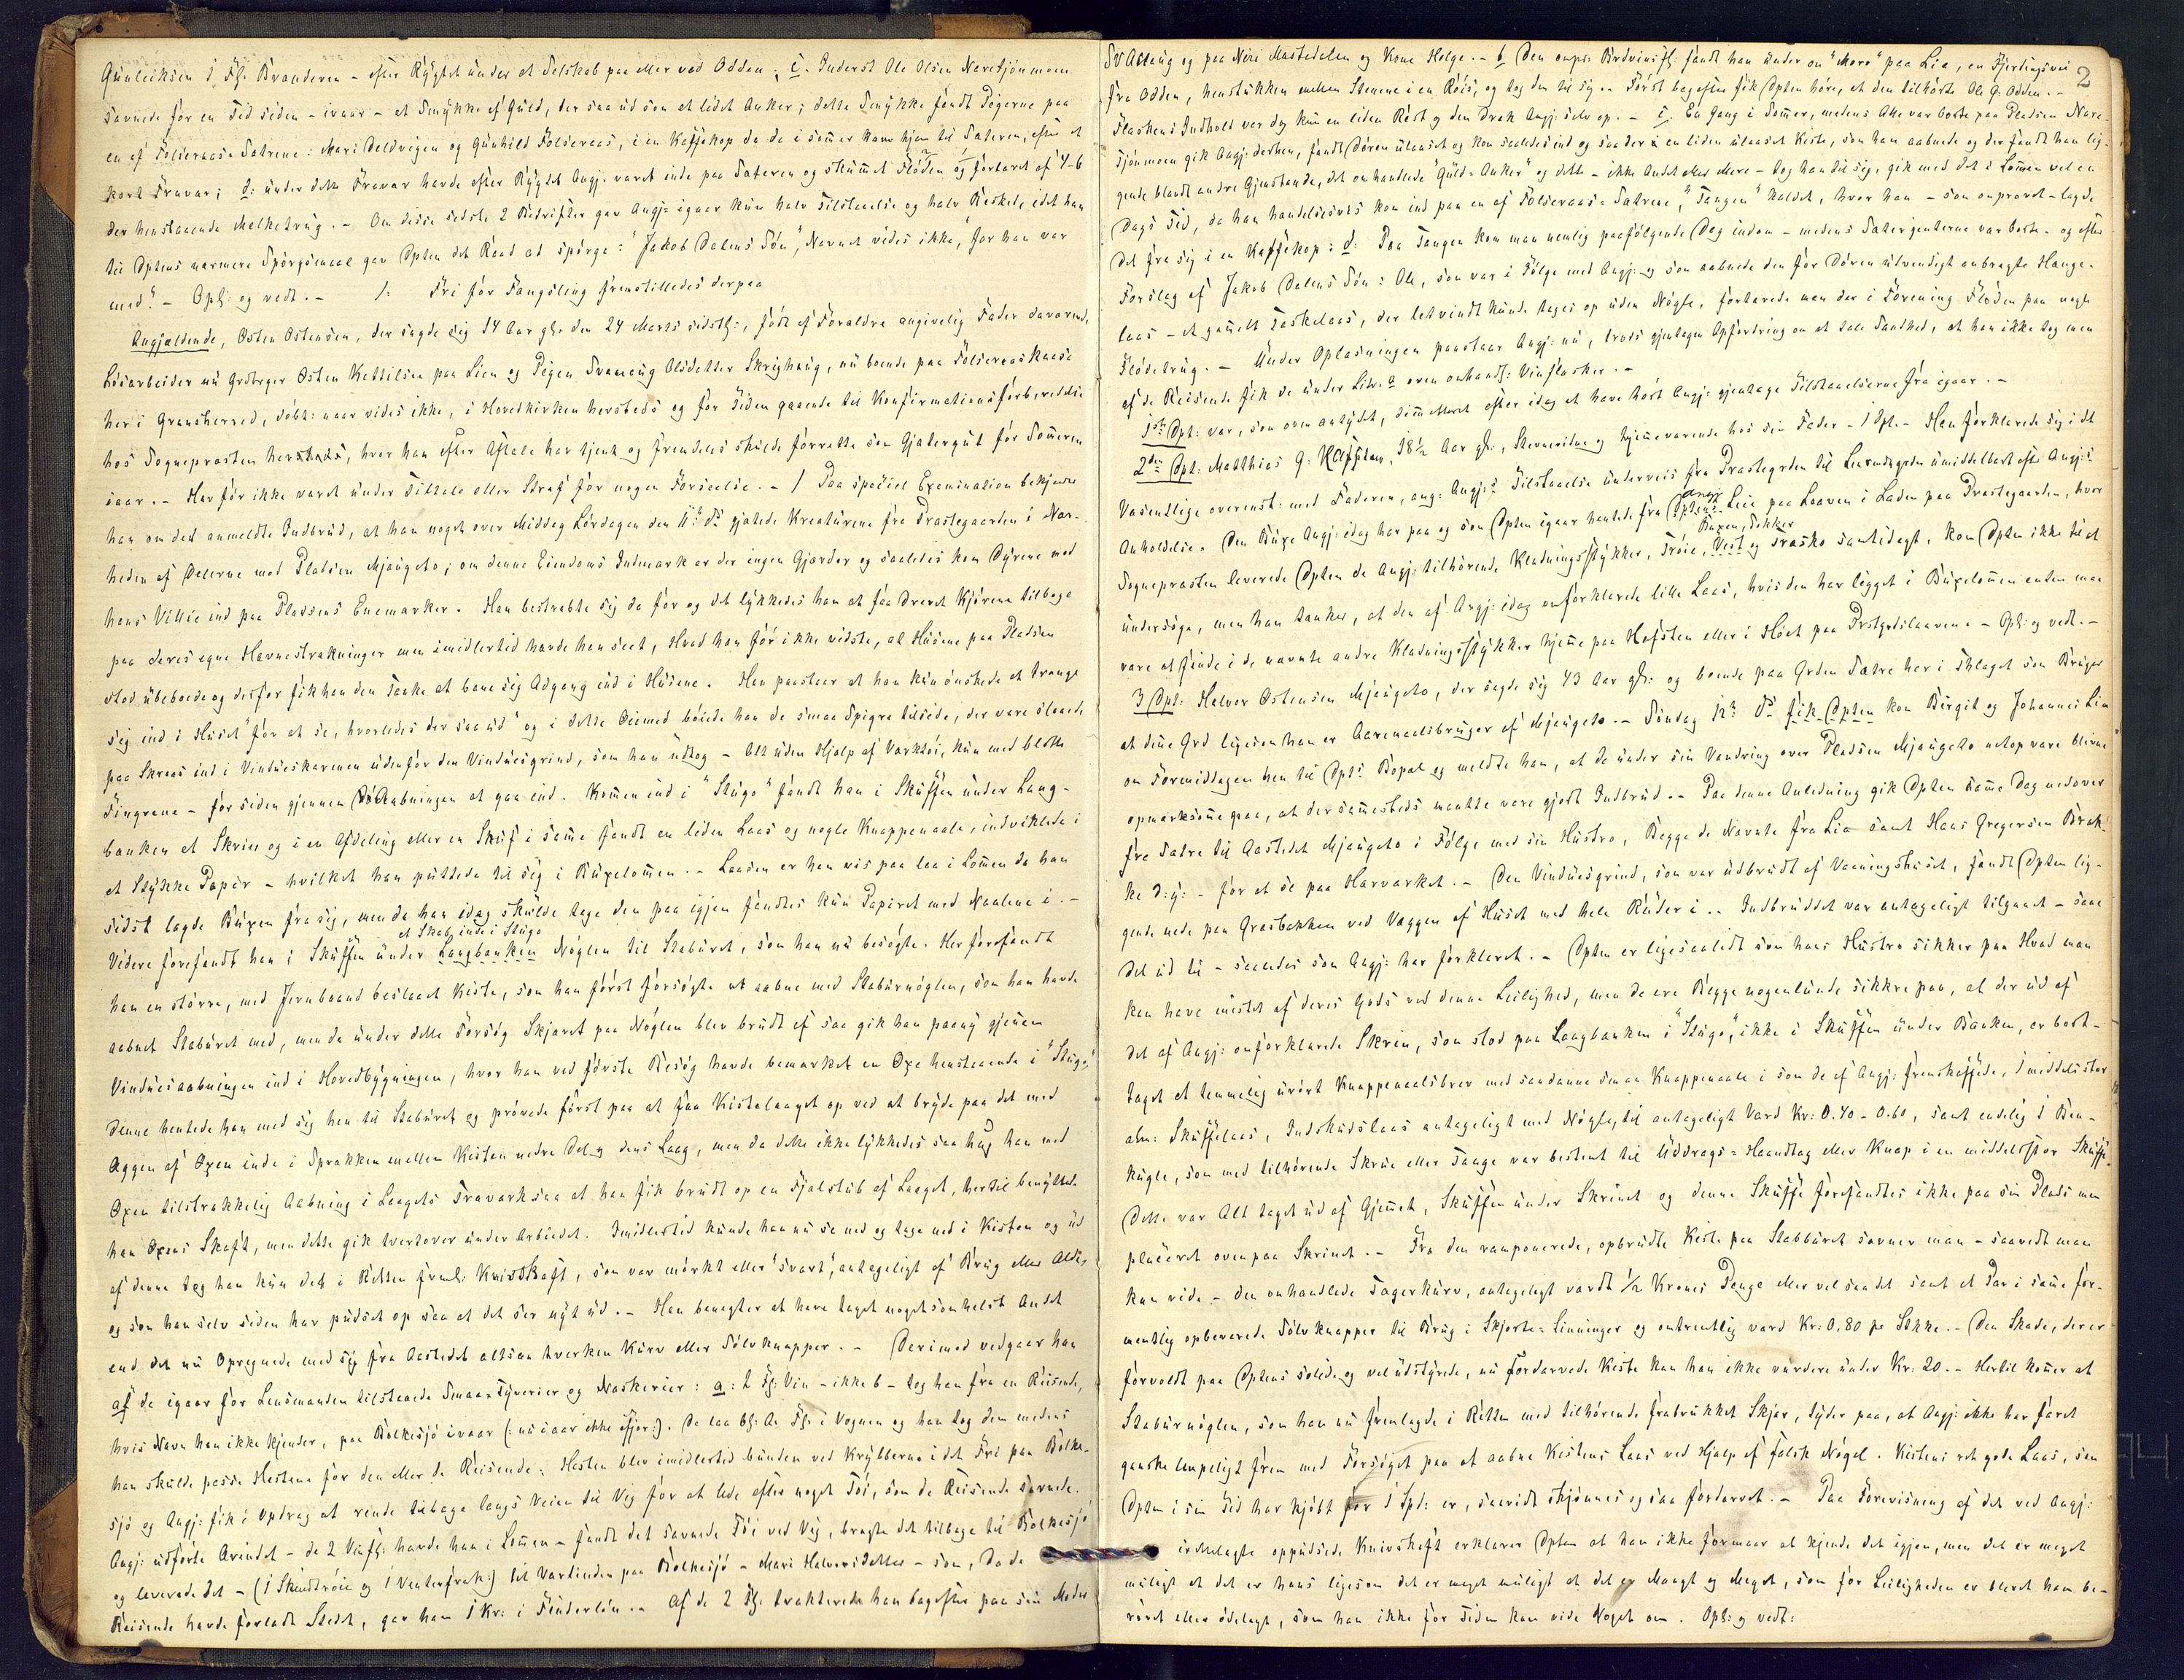 Gunleiksen 1 Fl. Branderin - efter Rygtet under et Selskab paa eller ved Odden; c. Inderst Ole Olsen Neresjønmoen
savnede for en Tid siden - ivaar - et Smykke af Guld, der saa ud som et lidet Anker; dette Smykke fandt Pigerne paa
en af Folseraas-Sætrene: Mari Deldvigen og Gunhild Folseraas, i en Kaffekop da de i sommer kom hjem til Sæteren, efter et
kort Fravær; d: under dette Fravær havde efter Rygtet Angj. været inde paa Sæteren og skummet Fløden og fortæret af 4-6
der henstaaende Melketrug. - Om disse sidste 2 Bedrifter gav Angj: igaar kun halv Tilstaaelse og halv Beskeed, idet han
til Dptens nærmere Spørgsmaal gav Dpten det Raad at spørge: "Jakob Dalens Søn", Navnet vides ikke, "for han var
med". - Opl: og vedt. - /: Fri for Fængsling fremstilledes derpaa
Angjældende, Østen Østensen, der sagde sig 14 Aar gl. den 24 Marts sidstl:, født af Forældre angivelig Fader daværende
Løsarbeider nu Grdbrger Østen Kettilsen paa Lien og Pigen Svanaug Olsdatter Skrighaug, nu boende paa Folseraaskaasa
her i Gransherred, døbt: naar vides ikke, i Hovedkirken hersteds og for Tiden gaaende til Konfirmationsforberedelse
hos Sognepræsten hersteds, hvor han efter Aftale har tjent og fremdeles skulde forrette som Gjætergut for Sommeren
iaar. - Har før ikke været under Tiltale eller Straf for nogen Forseelse. - / Paa speciel Examination bekjender
han om det anmeldte Indbrud, at han noget over Middag Lørdagen den 11te ds gjætede Kreaturene fra Præstegaarden i Nær-
heden af Delerne mod Pladsen Mjaugeto; om denne Eiendoms Indmark er der ingen Gjærder og saaledes kom Dyrene mod
hans Villie ind paa Pladsens Enemærker. Han bestræbte sig da for og det lykkedes ham at faa drevet Kjørene tilbage
paa deres egne Havnestrækninger men imidlertid havde han seet, Hvad han før ikke vidste, at Husene paa Pladsen
stod ubeboede og derfor fik han den Tanke at bane sig Adgang ind i Husene. Han paastaar at han kun ønskede at trænge
sig ind i Huset "for at se, hvorledes der saa ud" og i dette Øiemed bøiede han de smaa Spigre tilside, der vare slaaede
paa Skraas ind i Vinduskarmen udenfor den Vinduesgrind, som han udtog - Alt uden Hjælp af Værktøi, kun med blotte
Fingrene - for siden gjennem Aabningen at gaa ind. Kommen ind i "Stugo" fandt han i Skuffen under Lang-
bænken et Skrin og i en Afdeling eller en Skuf i samme fandt en liden Laas og nogle Knappenaale, indviklede i
et Stykke Papir - hvilket han puttede til sig i Buxelommen. - Laasen er han vis paa laa i Lommen da han
sidst lagde Buxen fra sig, men da han idag skulde tage den paa igjen fandtes kun Papiret med Naalene i. -
et Skab inde i Stugo
Videre forefandt han i Skuffen under Langbænken Nøglen til Stabburet, som han nu besøgte. Her forefandt
han en større, med Jernbaand beslaaet Kiste, som han først forsøgte at aabne med Staburnøglen, som han havde
aabnet Staburet med, men da under dette Forsøg Skjæret paa Nøglen blev brudt af saa gik han paany gjennem
Vinduesaabningen ind i Hovedbygningen, hvor han ved første Besøg havde bemærket en Øxe henstaaende i "Stugo".
Denne hentede han med sig hen til Staburet og prøvede først paa at faa Kistelaaget op ved at bryde paa det med
Æggen af Øxen inde i Sprækken mellem Kistens nedre Del og dens Laag, men da dette ikke lykkedes saa hug han med
Øxen tilstrækkelig Aabning i Laagets Træværk saa at han fik brudt op en Fjælstub af Laaget, hertil benyttet
han Øxens Skaft, men dette gik tvertover under Arbeidet. Imidlertid kunde han nu se ned og tage ned i Kisten og ud
af denne tog han kun det i Retten freml: Knivskaft, som var mørkt eller "svart", antageligt af Brug eller Ælde,
og som han selv siden har pudset op saa at det ser nyt ud. - Han benegter at have taget nogetsomhelst Andet
end det nu Opregnede med sig fra Aastedet altsaa hverken Kurv eller Sølvknapper. - Derimod vedgaar han
af de igaar for Lensmanden tilstaaede Smaa-Tyverier og Naskerier: a: 2 Fl: Vin - ikke 6 - tog han fra en Reisende,
hvis Navn han ikke kjender, paa Bolkesjø ivaar (: nu iaar ikke ifjor:). Da laa 6 Fl. i Vognen og han tog dem medens
han skulde passe Hestene for den eller de Reisende: Hesten blev imidlertid bunden ved Krybberne i det Fri paa Bolke-
sjø og Angj: fik i Opdrag at rende tilbage langs Veien til Vig for at lede efter noget Tøi, som de Reisende savnede.
Angj: udførte Ærindet - de 2 Vinfl: havde han i Lommen - fandt det savnede Tøi ved Vig, bragte det tilbage til Bolkesjø
og leverede det - (1 Skindtrøie og 1 Vinterfrak:) til Værtinden paa Bolkesjø - Mari Halvorsdatter - som, da de
Reisende havde forladt Stedet, gav ham 1 Kr: i Finderløn. - Af de 2 Fl. trakterede han bagefter paa sin Moder
2
Svanaug og paa Neri Mastedalen og Kone Helge. - b Den omspr. Brdvinsfl: fandt han under en "Moro" paa Lia, en Fjerdingsvei
fra Odden, henstukken mellem Stenene i en Røis, og tog den til sig. - Først bagefter fik Dpten høre, at den tilhørte Ole G. Odden. -
Flaskens Indhold var dog kun en liden Rest og den drak Angj: selv op. - c. En Gang i Sommer, medens Alle var borte paa Pladsen Nere-
sjønmoen gik Angj: derhen, fandt Døren ulaaset og kom saaledes ind og saa der en liden ulaaset Kiste, som han aabnede og der fandt han lig-
gende blandt andre Gjenstande, det omhandlede "Guld-Anker" og dette - ikke Andet eller Mere - tog han til sig, gik med det i Lommen vel en
Dags Tid, da han hændelsesvis kom ind paa en af Folseraas-Sætrene, "Tangen" kaldet, hvor han - som omprovet - lagde
det fra sig i en Kaffekop: d: Paa Tangen kom man nemlig paafølgende Dag indom - medens Sæterjenterne var borte - og efter
Forslag af Jakob Dalens Søn: Ole, som var i Følge med Angj: og som aabnede den for Døren udvendigt anbragte Hænge-
laas - et gammelt Taskelaas, der letvindt kunde tages op uden Nøgle, fortærede man der i Forening Fløden paa nogle
Flødetrug. - Under Oplæsningen paastaar Angj: nu, trods gjentagen Opfordring om at tale Sandhed, at han ikke tog men
af de Reisende fik de under Litr. a oven omhandl: Vinflasker. -
1ste Dpt: var, som oven antydet, dimitteret efter idag at have hørt Angj: gjentage Tilstaaelserne fra igaar. -
2den Dpt: Matthias G. Kasten, 18½ Aar gl:, Stevnevidne og hjemmeværende hos sin Fader - 1 Dpt. - Han forklarede sig i det
Væsentlige overenst: med Faderen, ang: Angj:s Tilstaaelse underveis fra Præstegrden til Lensmdsgrden umiddelbart efter Angj:s
Angj:
Anholdelse. Den Buxe Angj: idag har paa og som Dpten igaar hentede fra Dptens Leie paa Laaven i Laden paa Præstegaarden, hvor
Buxen, Sokker
Sognepræsten leverede Dpten de Angj: tilhørende Klædningsstykker, Trøie, Vest og Træsko samtidigt, kom Dpten ikke til at
undersøge, men han tænker, at den af Angj: idag omforklarede lille Laas, hvis den har ligget i Buxelommen enten maa
være at finde i de nævnte andre Klædningsstykker hjemme paa Hafsten eller i Høet paa Prstgrdslaaven. - Opl: og vedt. -
3 Dpt: Halvor Østensen Mjaugeto, der sagde sig 43 Aar gl: og boende paa Grden Sætre her i Thlaget som Bruger
at denne Grd ligesom han er Aaremaalsbruger af Mjaugeto. - Søndag 12te ds fik Dpten kom Birgit og Johannes Lia
om Formiddagen hen til Dpts Bopæl og meldte ham, at de under sin Vandring over Pladsen Mjaugeto netop vare blevne
opmærksomme paa, at der sammesteds maatte være gjort Indbrud. - Paa denne Anledning gik Dpten samme Dag nedover
fra Sætre til Aastedet Mjaugeto i Følge med sin Hustro, Begge de Nævnte fra Lia samt Hans Gregersen Bræk-
ke d:y: - for at se paa Hærværket. - Den Vinduesgrind, som var udbrudt af Vaaningshuset, fandt Dpten lig-
gende nede paa Græsbakken ved Væggen af Huset med hele Ruder i. - Indbruddet var antageligt tilgaaet - saae
det ud til - saaledes som Angj: har forklaret. - Dpten er ligesaalidt som hans Hustro sikker paa Hvad man
kan have mistet af deres Gods ved denne Leilighed, men de ere Begge nogenlunde sikkre paa, at der ud af
det af Angj: omforklarede Skrin, som stod paa Langbænken i "Stugo", ikke i Skuffen under Bænken, er bort-
taget et temmelig urørt Knappenaalsbrev med saadanne smaa Knappenaale i som de af Angj: fremskaffede, 1 middelsstor
alm: Skuffelaas, Indskudslaas antageligt med Nøgle, til antageligt Værd Kr: 0.40 - 0.60, samt endelig 1 Ben-
kugle, som med tilhørende Skrue eller Tange var bestemt til Uddrags-Haandtag eller Knap i en middelsstor Skuffe.
Dette var Alt taget ud af Gjemmet, Skuffen under Skrinet og denne Skuffe forefandtes ikke paa sin Plads men
placeret ovenpaa Skrinet. - Fra den ramponerede, opbrudte Kiste paa Stabburet savner man - saavidt man
kan vide - den omhandlede Fagerkurv, antageligt værdt ½ Krones Penge eller vel saa det samt et Par i samme for-
mentlig opbevarede Sølvknapper til Brug i Skjorte-Linninger og omtrentlig værd Kr: 0,80 pr Stkke. - Den Skade, der er
forvoldt paa Dptens solide og veludstyrede, nu fordærvede Kiste kan han ikke vurdere under Kr: 20. - Hertil kommer at
Staburnøglen, som han nu fremlagde i Retten med tilhørende frabrukket Skjær, tyder paa, at Angj: ikke har faret
ganske lempeligt frem med Forsøget paa at aabne Kistens Laas ved Hjælp af falsk Nøgel. Kistens ret gode Laas, som
Dpten i sin Tid har kjøbt for 1 Spd: er, saavidt skjønnes og saa fordærvet. - Paa Forevisning af det ved Angj:
irettelagte oppudsede Knivskaft erklærer Dpten at han ikke formaar at kjende det igjen, men det er meget
muligt at det er hans ligesom det er meget muligt at det er Mangt og Meget, som for Leiligheden er bleven ham be-
røvet eller ødelagt, som han ikke for Tiden kan vide Noget om. Opl: og vedt: